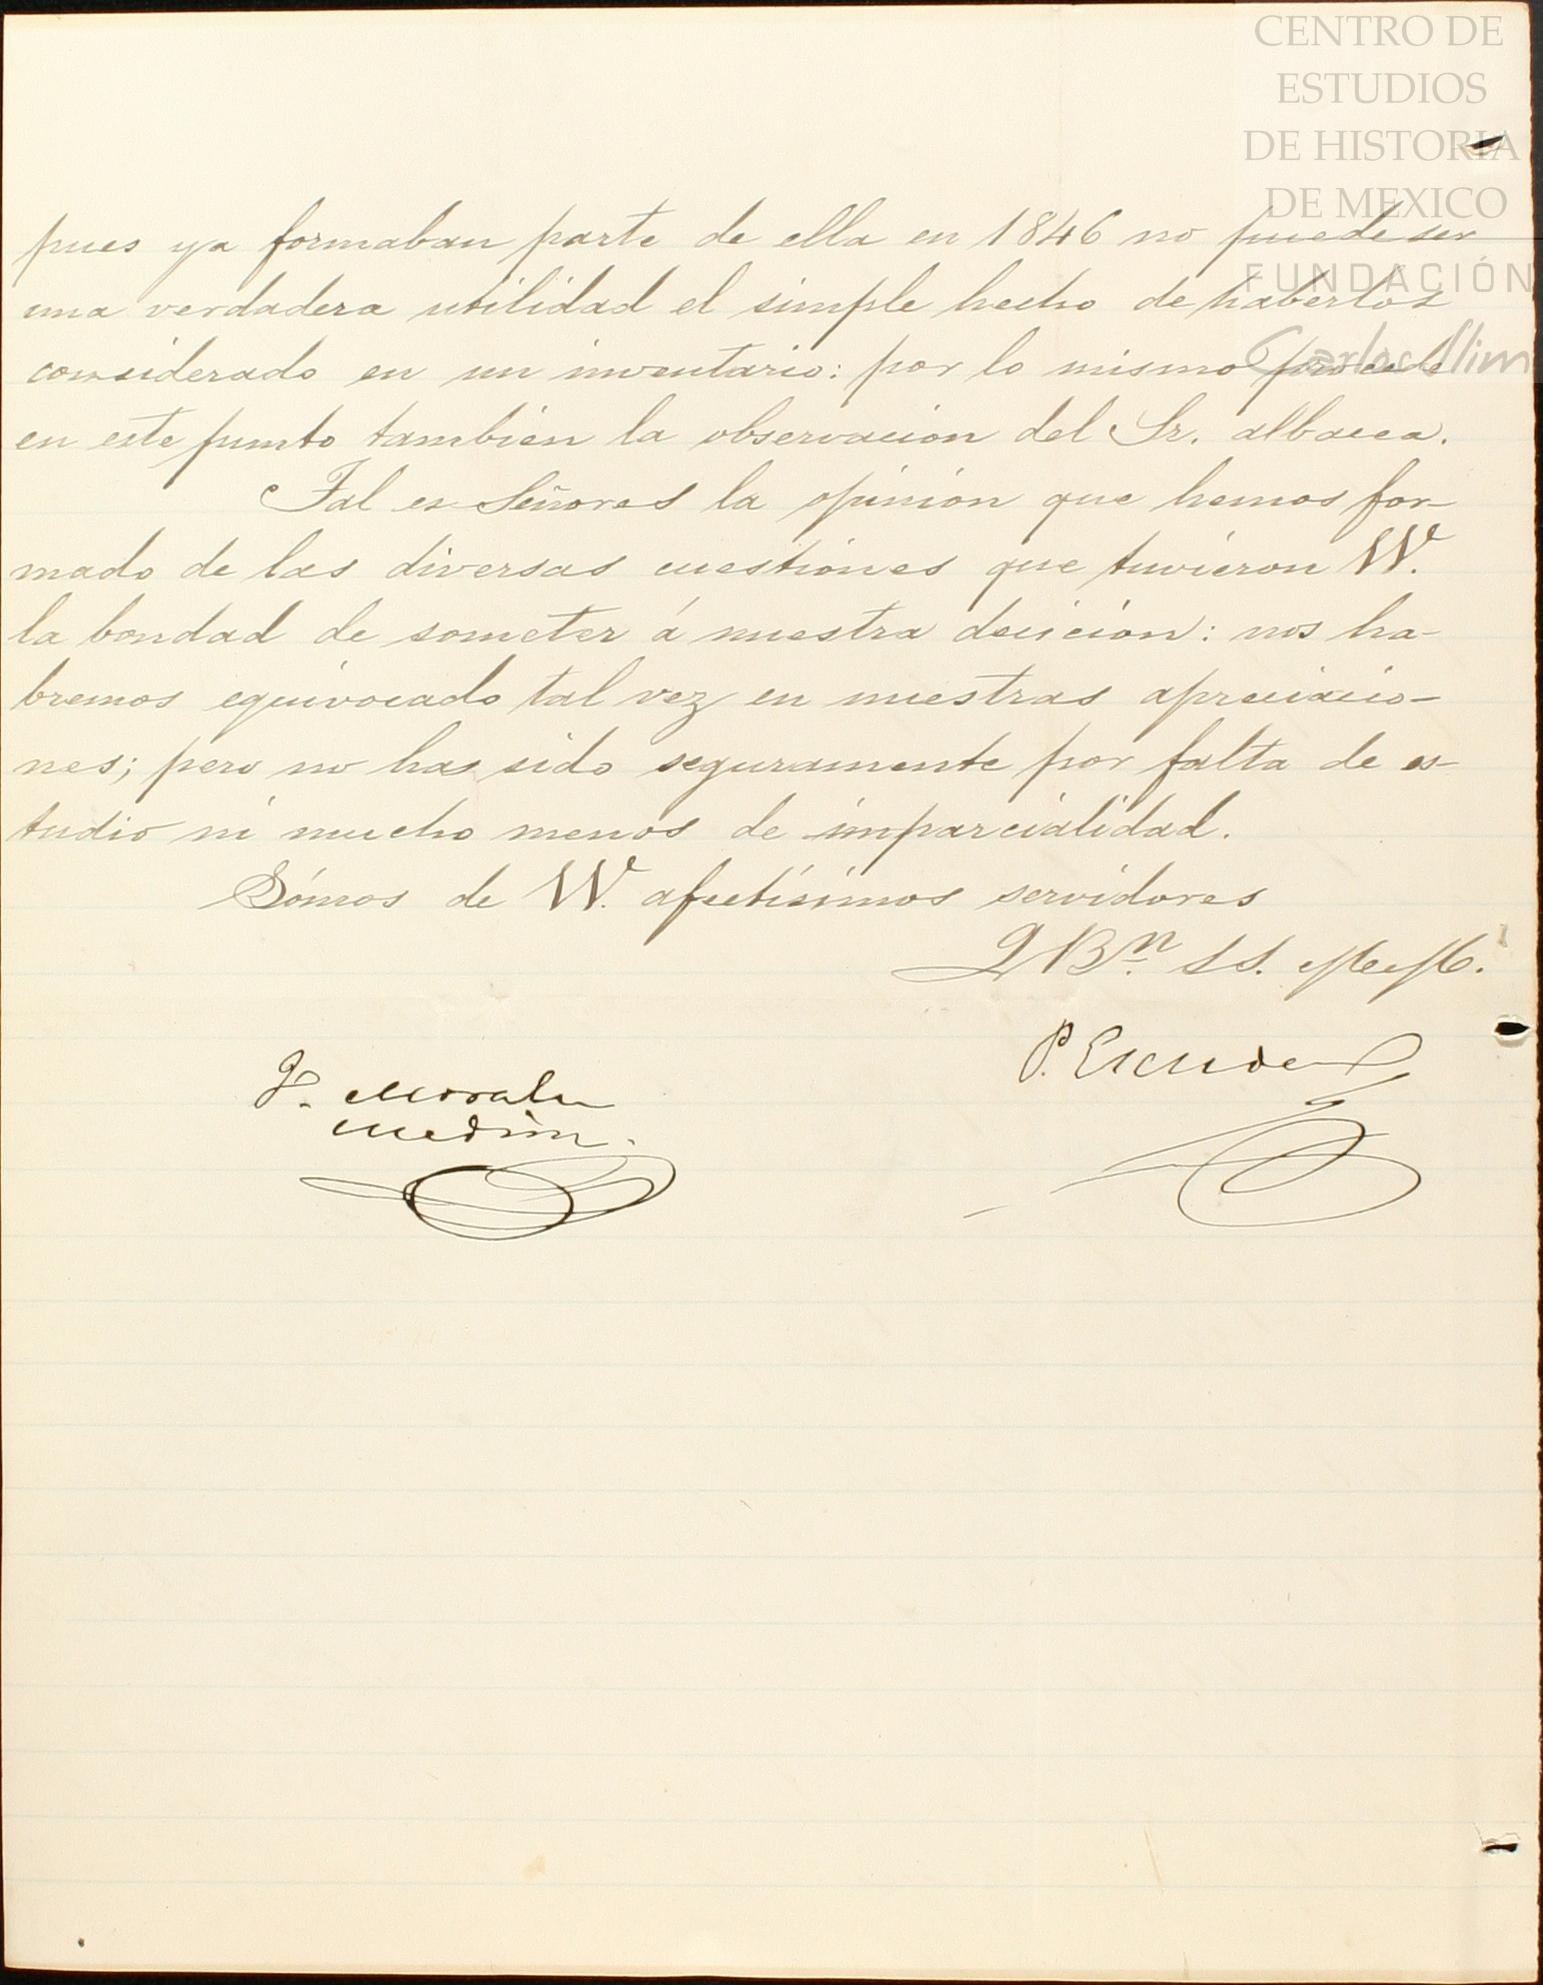 CENTRO DE
ESTUDIOS
DE HISTORIA
DE MEXICO
FUNDACIÓN
Carlos Slim
pues ya formaban parte de ella en 1846 no puede ser
una verdadera utilidad el simple hecho de haberlos
considerado en un inventario: por lo mismo procede
en este punto también la observación del Sr. albacea.
Tal es Señores la opinión que hemos for-
mado de las diversas cuestiónes que tuvieron VV.
la bondad de someter á nuestra decición: nos ha-
bremos equivocado tal vez en nuestras apreciacio-
nes; pero no ha sido seguramente por falta de es-
tudio ni mucho menos de imparcialidad.
Sómos de VV. afectísimos servidores
Q B.n SS. MM.
P. Escudero
J. Morales
Medina.